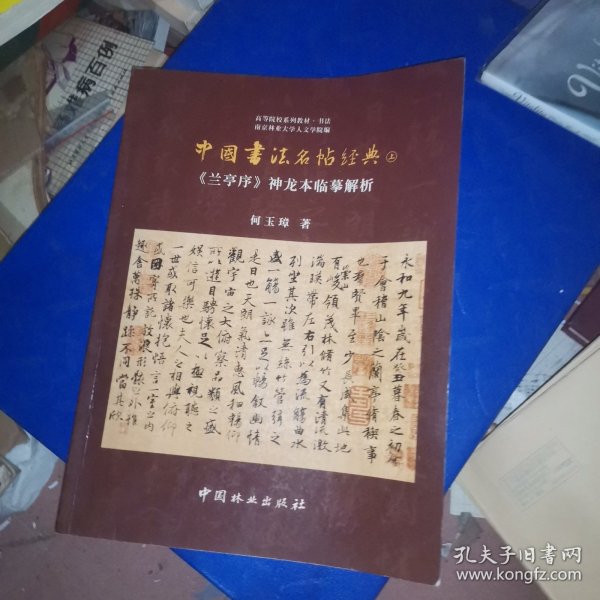 高等院校系列教材·书法
南京林业大学人文学院编
中國書法名帖經典上
《兰亭序》神龙本临摹解析
何玉璋 著
永和九年歲在癸丑暮春之初會
于會稽山陰之蘭亭脩稧事
也羣賢畢至少長咸集此地
有崇山峻領茂林脩竹又有清流激
湍暎帶左右引以為流觴曲水
列坐其次雖無絲竹管弦之
盛一觴一詠亦足以暢敘幽情
是日也天朗氣清惠風和暢仰
觀宇宙之大俯察品類之盛
所以遊目騁懷足以極視聽之
娛信可樂也夫人之相與俯仰
一世或取諸懷抱悟言一室之內
或因寄所託放浪形骸之外雖
趣舍萬殊靜躁不同當其欣
中国林业出版社
病百例
孔夫子旧书网
www.kongfz.com